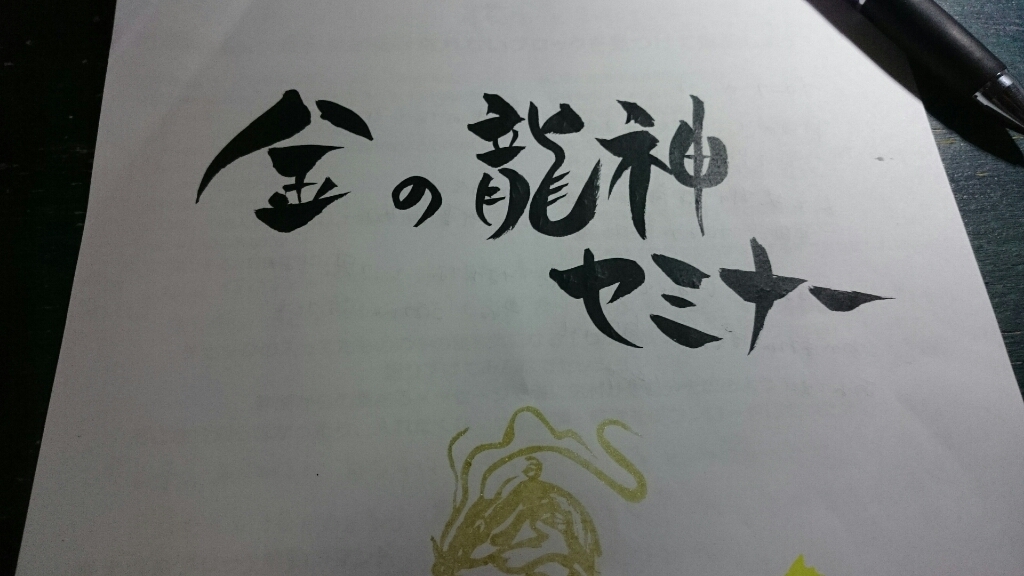 金の龍神
セミナー